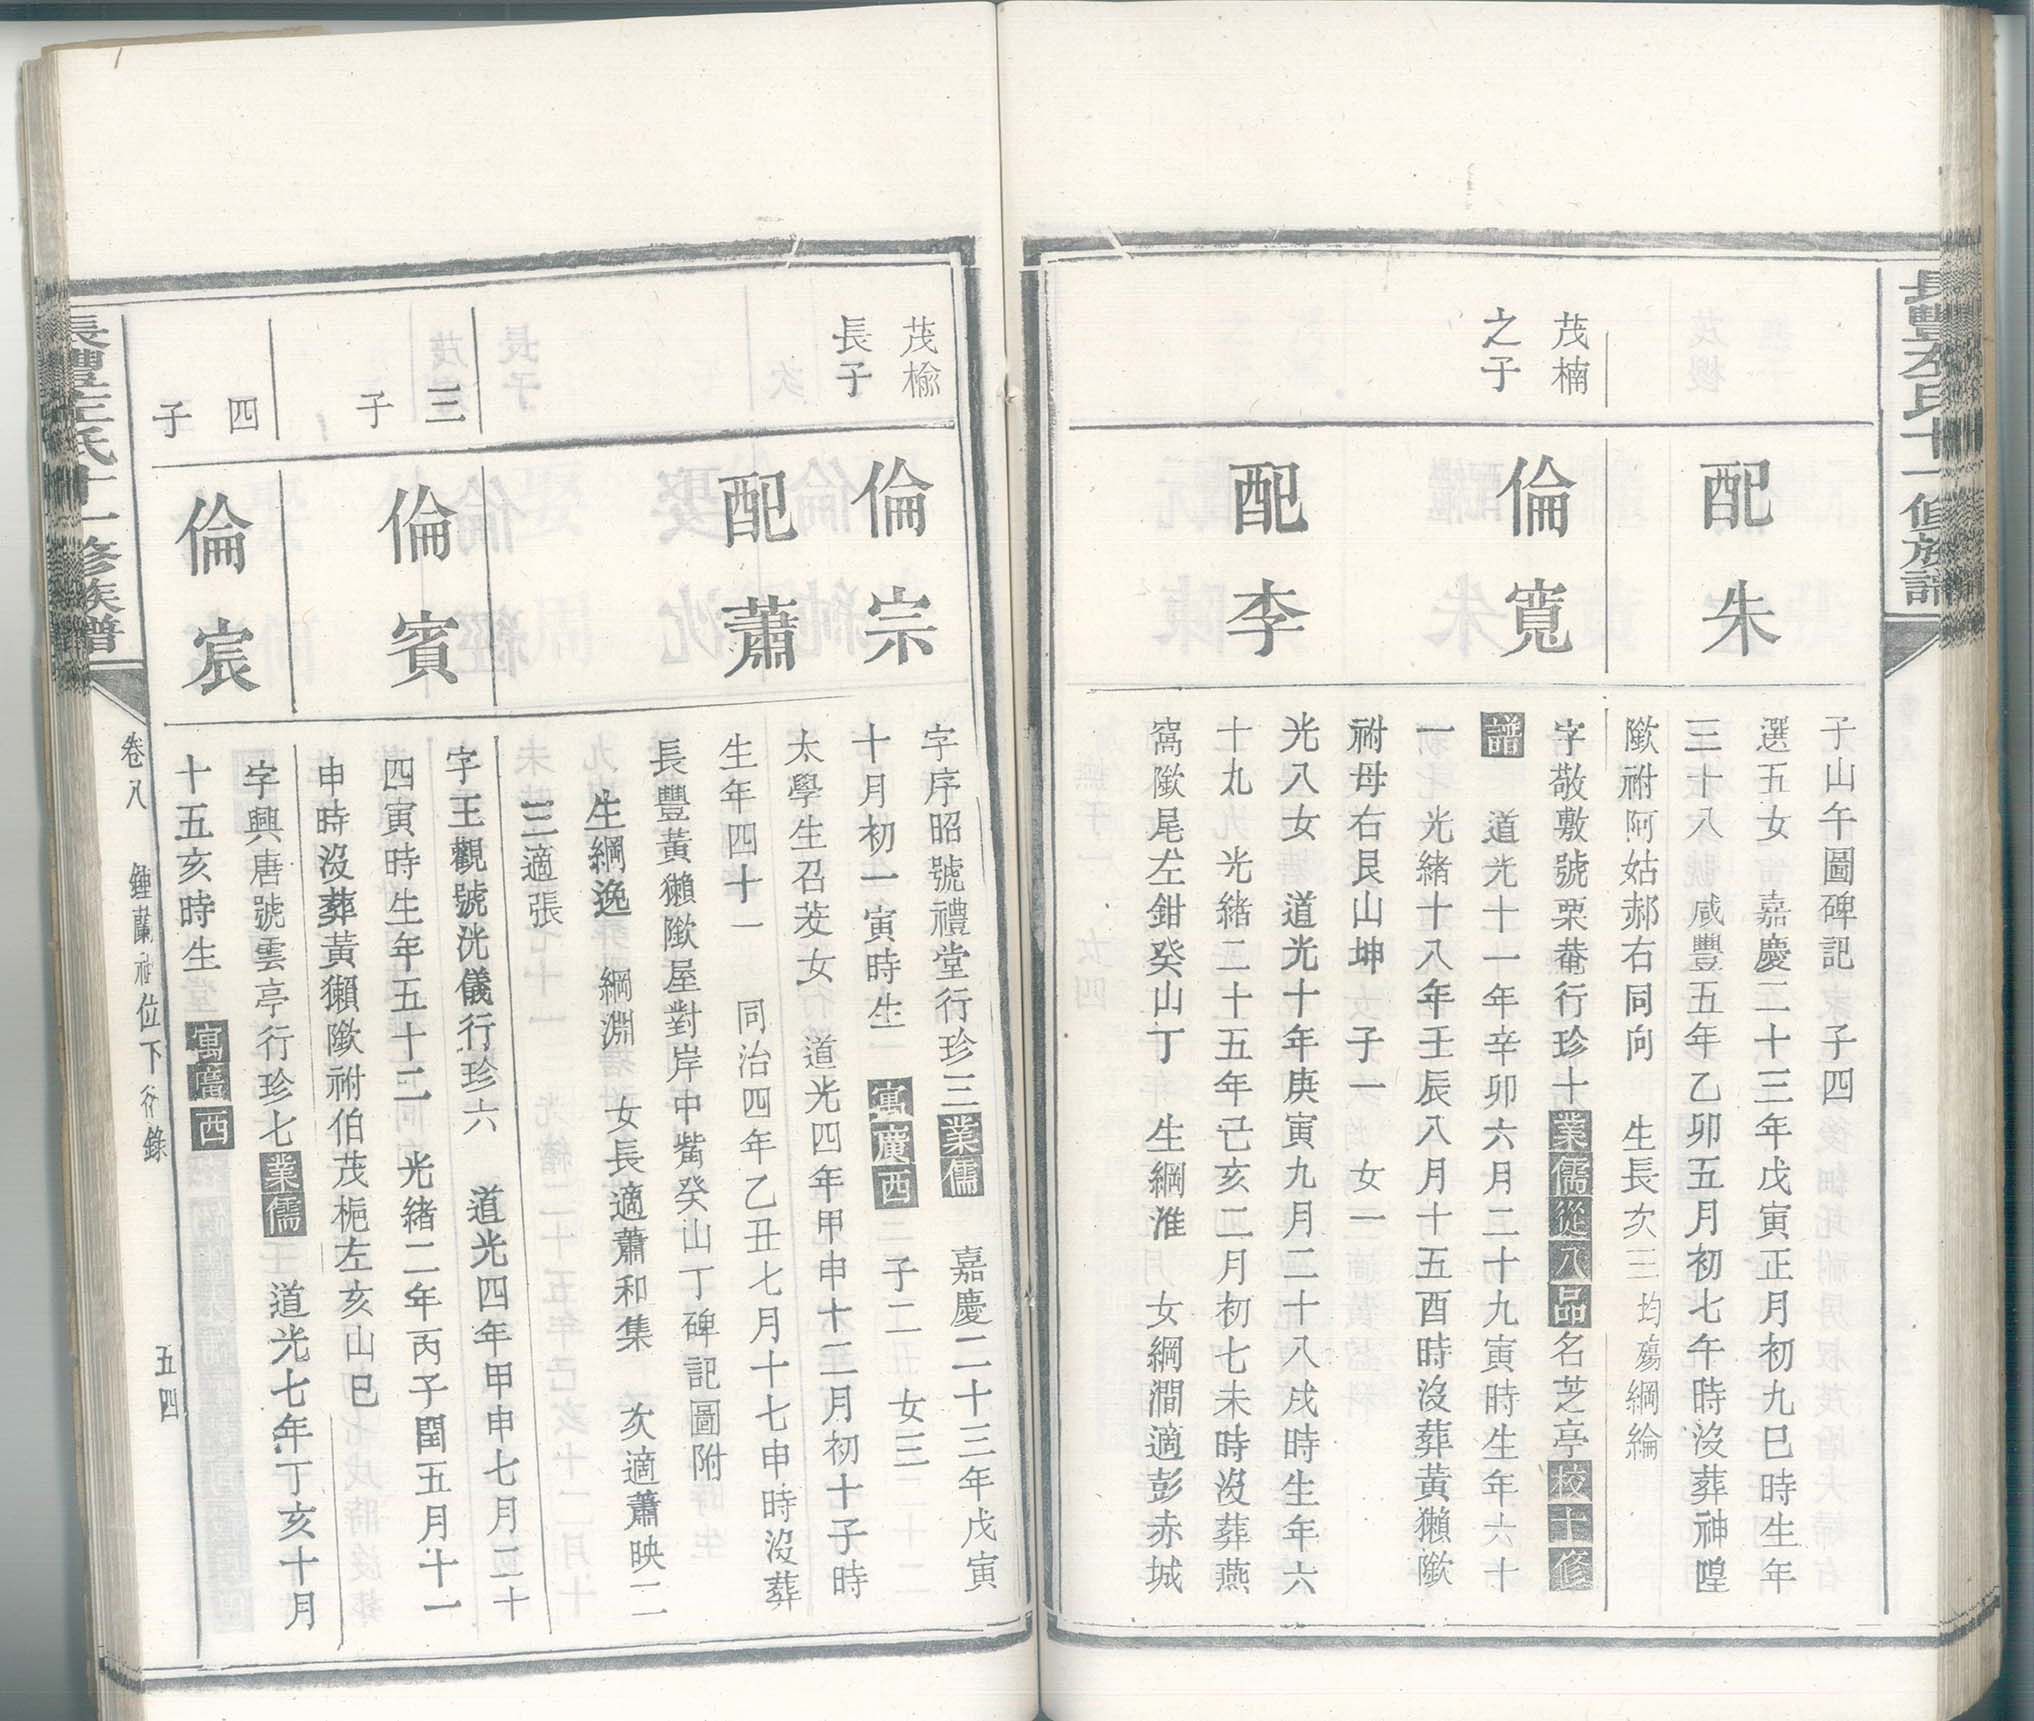 長豐左氏十一修族譜
配朱
子山午圖碑記 子四
選五女 嘉慶二十三年戊寅正月初九巳時生年
三十八 咸豐五年乙卯五月初七午時沒葬神隍
墩祔阿姑郝右同向 生長次三均殤綱綸
茂楠
之子
倫寬
字敬敷號栗菴行珍十業儒從八品名芝亭校十修
譜 道光十一年辛卯六月二十九寅時生年六十
一 光緒十八年壬辰八月十五酉時沒葬黃獺墩
祔母右艮山坤 子一 女一
配李
光八女 道光十年庚寅九月二十八戌時生年六
十九 光緒二十五年己亥二月初七未時沒葬燕
窩墩尾左鉗癸山丁 生綱淮 女綱澗適彭赤城
茂榆
長子
倫宗
字序昭號禮堂行珍三業儒 嘉慶二十三年戊寅
十月初一寅時生 寓廣西 子二 女三
配蕭
太學生召茇女 道光四年甲申十二月初十子時
生年四十一 同治四年乙丑七月十七申時沒葬
長豐黃獺墩屋對岸中觜癸山丁碑記圖附
生綱逸 綱淵 女長適蕭和集 次適蕭映二
三適張
三
子
倫賓
字王觀號洸儀行珍六 道光四年甲申七月二十
四寅時生年五十二 光緒二年丙子閏五月十一
申時沒葬黃獺墩祔伯茂梔左亥山巳
四
子
倫宸
字興唐號雲亭行珍七業儒 道光七年丁亥十月
十五亥時生 寓廣西
長豐左氏十一修族譜
卷八 鍾蘭祖位下行錄 五四